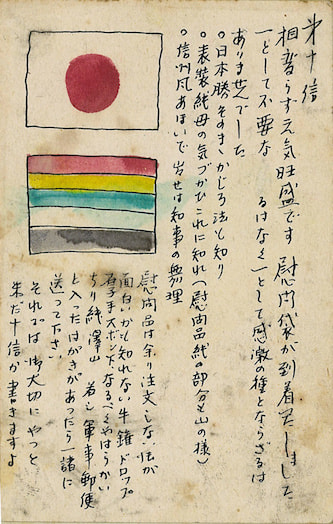 第十信
相変らず元気旺盛です 慰問袋が到着笑しました
一として不要な
るはなく一として感激の種とならざるは
ありませんでした
○日本勝 かじる法も知り
○表装紙母の気づかひこれに知れ(慰問品紙の部分も山の様)
○信州凧あほいで 岩せは知事の無理
慰問品は余り注文しない性が
面白いかも知れない 牛罐 ドロップ
石けん スポンヂ なるべくやはらかい
ちり紙 澤山 若し軍事郵便
と入ったはがきがあったら一諸に
送って下さい
それでは御大切に やっと
朱だ十信が書きますよ